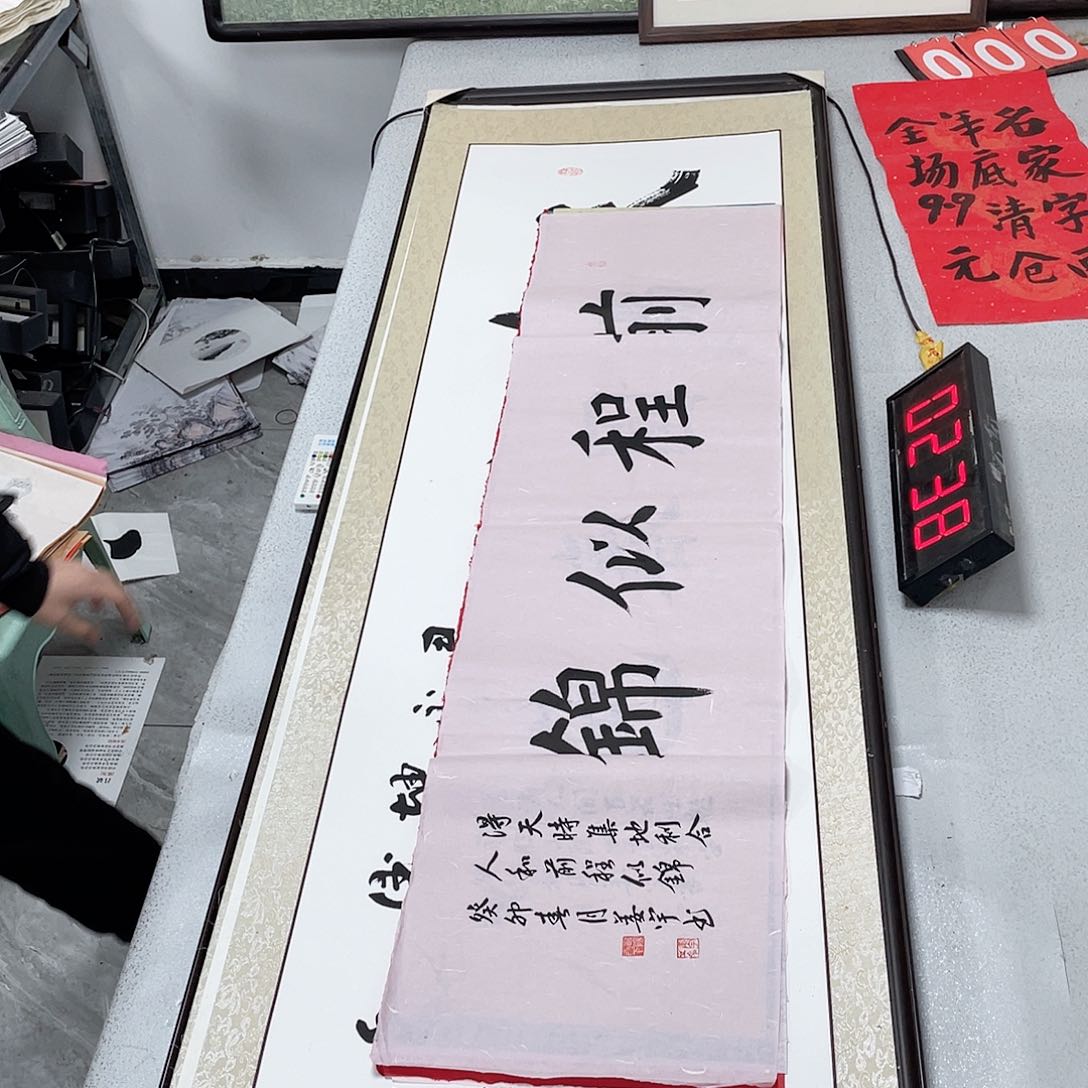 前程似錦
得天時集地利合
人和前程似錦
癸卯春月姜宇书
000
名家字画
年底清仓
全场99元
0238